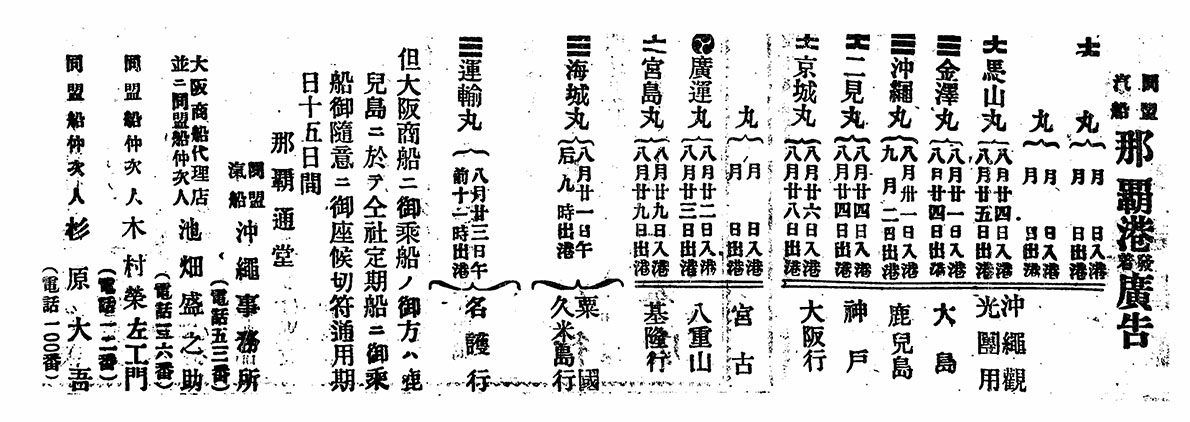 同盟汽船 那覇港發着廣告
丸 月 日入港 月 日出港
丸 月 日入港 月 日出港
馬山丸 八月廿四日入港 八月廿五日出港 沖繩觀光團用
金澤丸 八月廿一日入港 八月廿四日出港 大島
沖繩丸 八月卅一日入港 九月二四出港 鹿兒島
二見丸 八月廿四日入港 八月廿四日出港 神戸
京城丸 八月廿六日入港 八月廿八日出港 大阪行
丸 月 日入港 月 日出港 宮古
廣運丸 八月廿二日入港 八月廿三日出港 八重山
宮島丸 八月廿九日入港 八月廿九日出港 基隆行
海城丸 八月廿一日午后九時出港 粟國 久米島行
運輸丸 八月廿三日午前十一時出港 名護行
但大阪商船ニ御乘船ノ御方ハ鹿
兒島ニ於テ仝社定期船ニ御乘
船御隨意ニ御座候切符通用期
日十五日間
那覇通堂
同盟汽船 沖繩事務所
(電話五三番)
大阪商船代理店
並ニ同盟船仲次人 池畑盛之助
(電話三六番)
同盟船仲次人 木村榮左工門
(電話一二番)
同盟船仲次人 杉原大吾
(電話一00番)